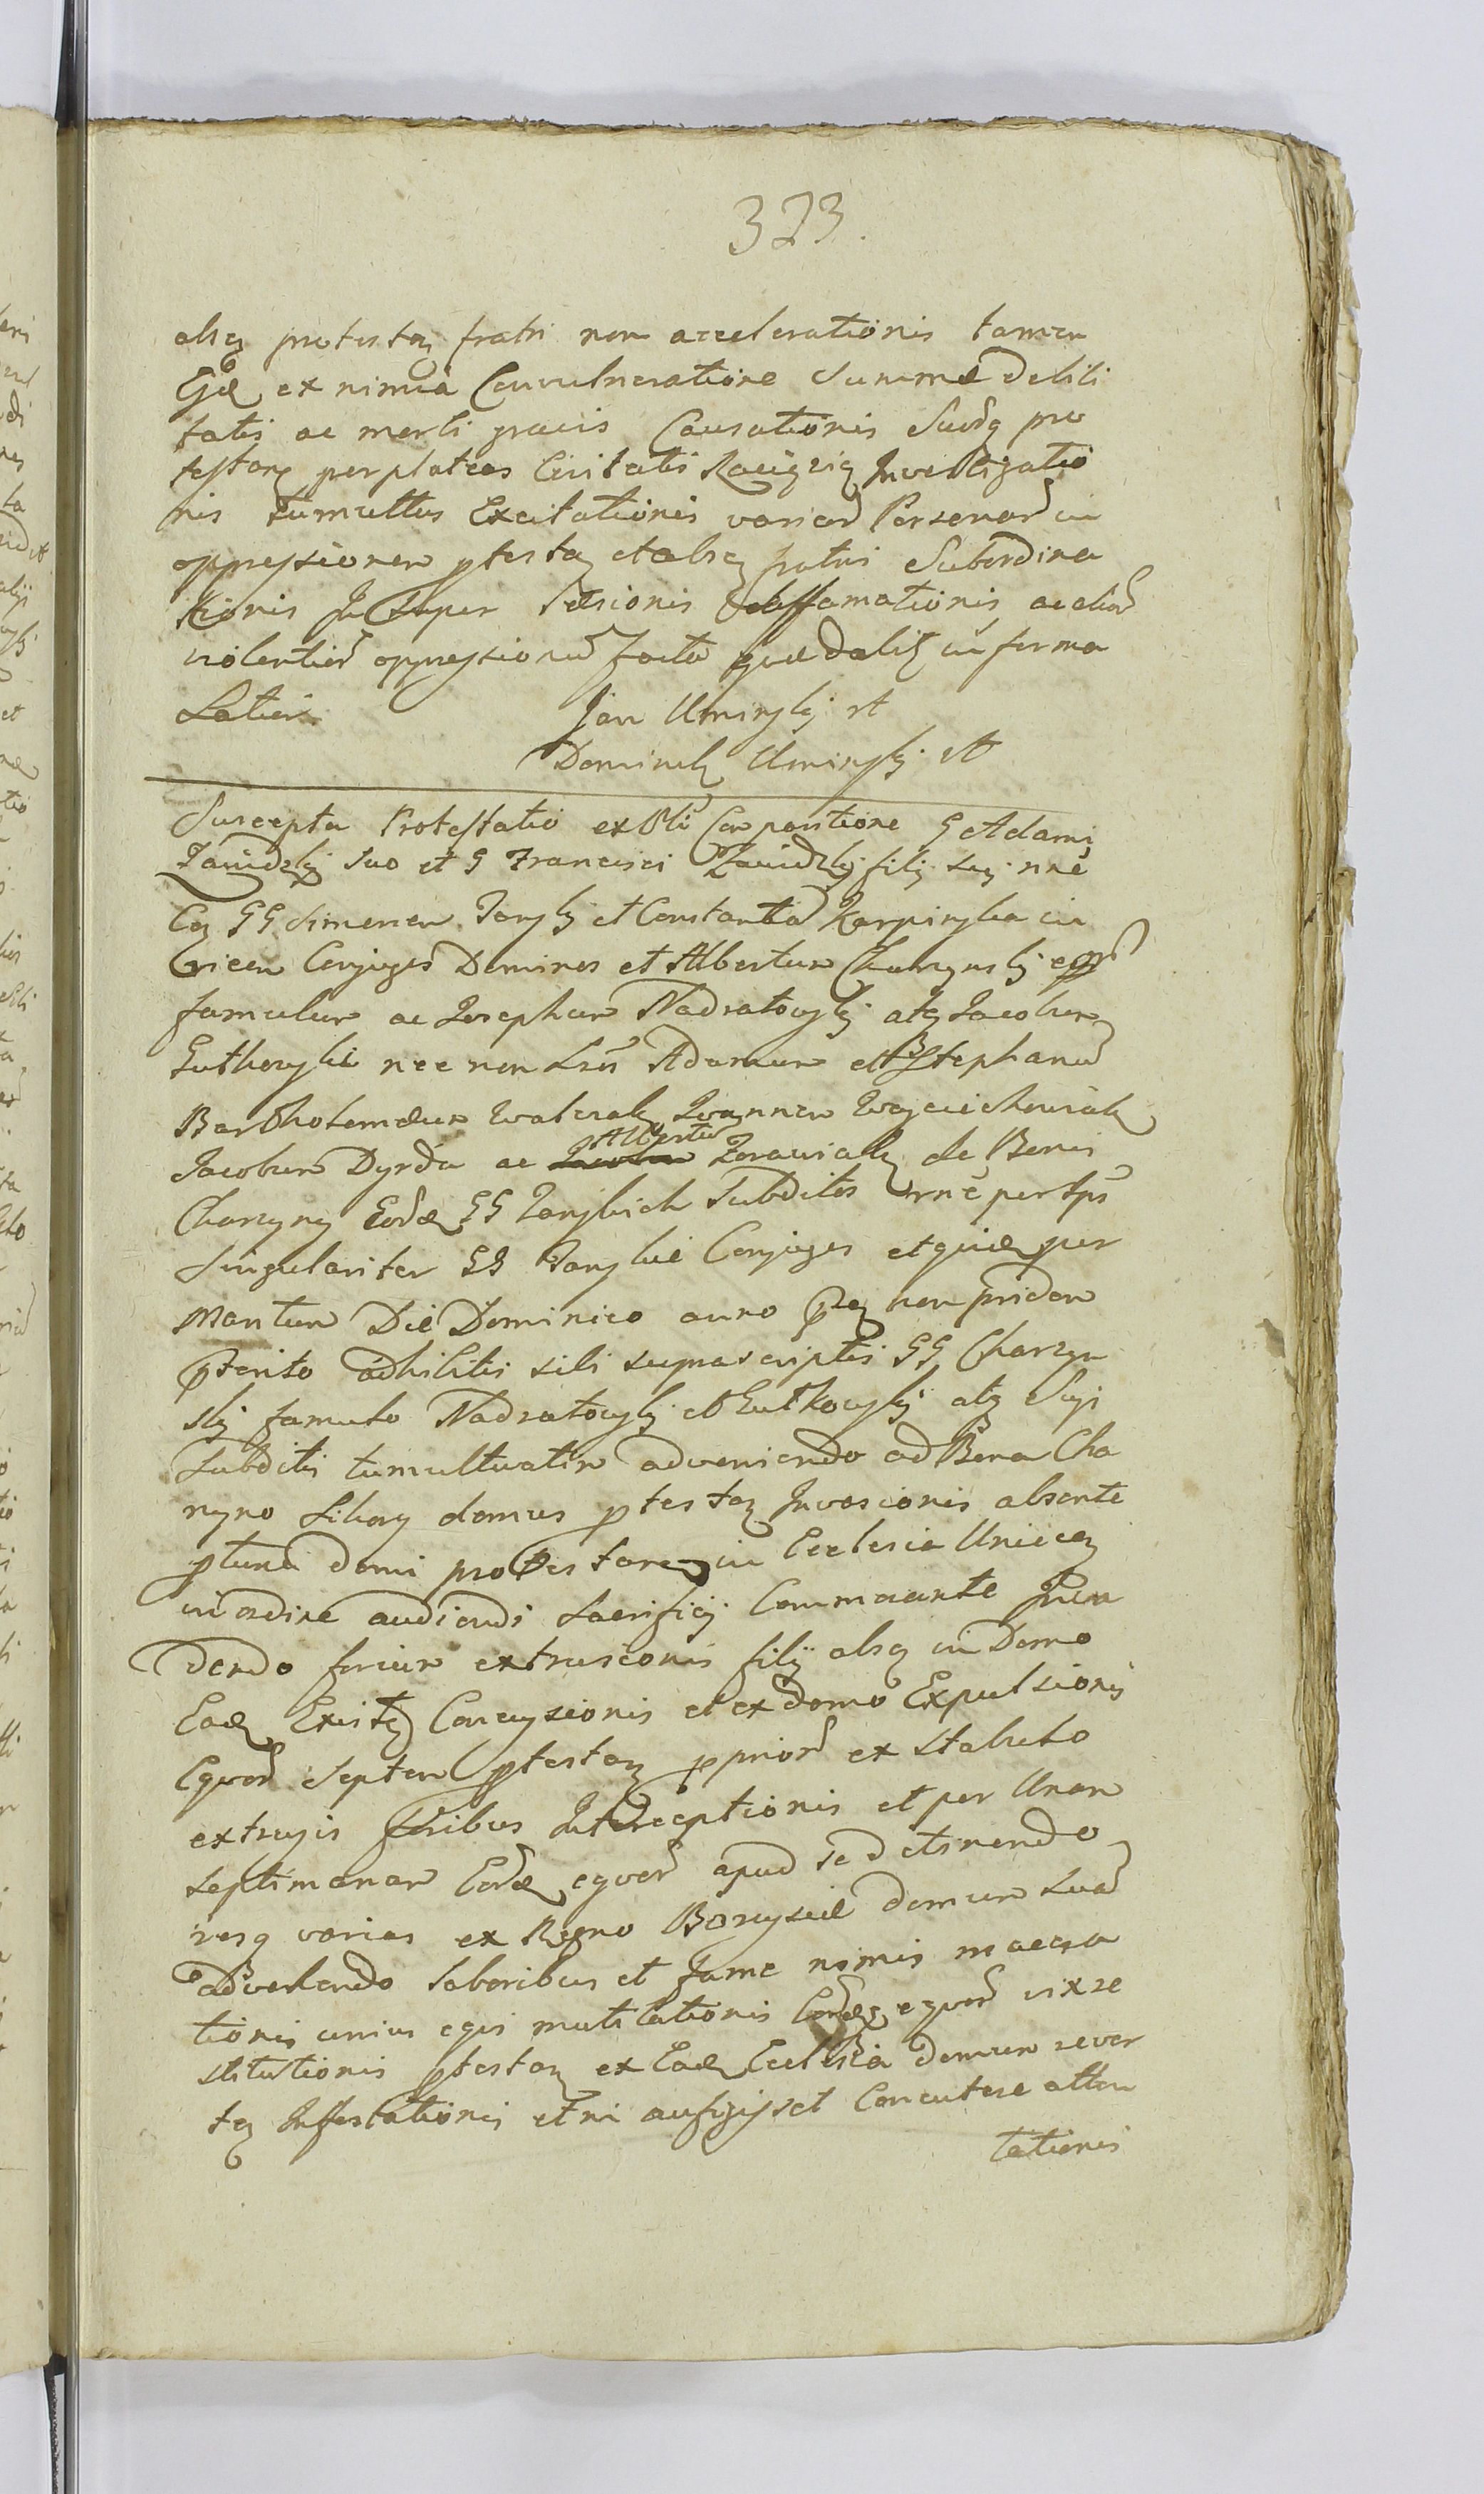 323.
absq protestaq fratri non accelerationis tamen
Ejd ex nimia Convulneratione summae debili
tatis ac morti gravis Causationis Suorq pro
testanq per plateas Civitatis Investigatio
nis tumultus Excitationis variar Personar in
oppressionem ptestaq et absq fratris Subordina
tionis Insuper Laesionis diffamationis ac aliar
violentiar oppressionu facta quae dalis in forma
Latiori.
Jan Uminsky st
Dominik Uminsky st
Suscepta Protestatio ex Obli Comparitione G Adami
Zawidzky suo et G Francisci Zawidzky filij suj nne
Cq GG Simonem Jansky et Constantia Karpinska in
vicem Conjuges Dominos et Albertum Charzynsky
famulum ac Josephum Nadratowsky atq Jacobum
Gutkowski nec non Lros Adamum et Stephanu
Bartholomaeum Walczak Joannem Woyciechowiak
Jacobum Dyrda ac Albertu Zorawiak de Bonis
Charzyny Eord GG Janskich Subditos nne per
Singulariter GG Janskie Conjuges et quia per
Mantum Die Dominico anno non pridem
pterito adhibitis sibi suprascriptis GG Charzyn
sky famulo Nadratowsky et Gutkowsky atq Suji
Subditis tumultuatim adveniendo ad Bona Cha
rzyno domus ptestaq Invasionis absente
ptunc domi protestanq in Ecclesia
in ordine audiendi Sacrificij Commorante
dendo forium extrusionis filij absq in Domo
Ead Existq Concussionis et ex domo Expulsionis
Equor Septem ptestaq pprior ex stabulo
extrusis foribus Interceptionis et per Unam
septimanam Eord equor apud se detinendo
resq varias ex Regno Borussiae domum sua
advehendo laboribus et fame nimis macera
tionis unius equi mutilationis Eord equor vix re
stitutionis ptestaq ex Ead Ecclesia domum rever
tq Infestationis et ni aufugisset Concutere atten
tationis